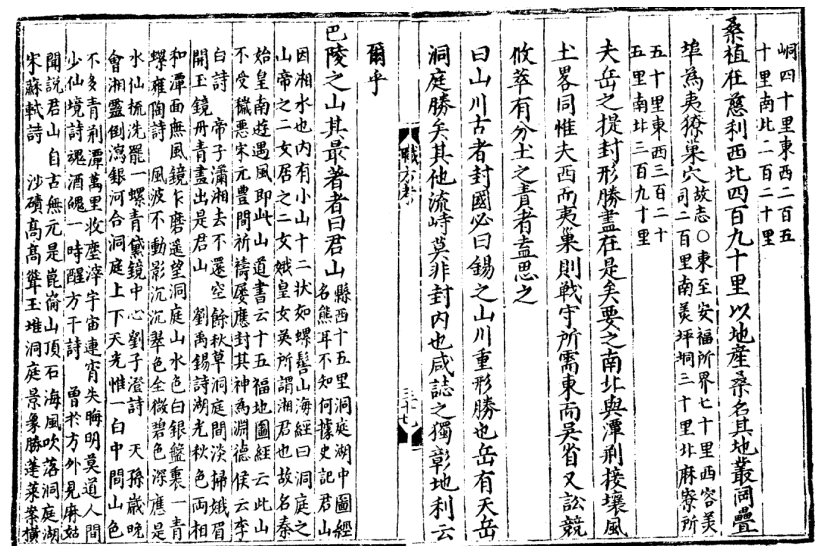 峒四十里東西二百五
十里南北二百二十里
桑植在慈利西北四百九十里以地產桑名其地叢洞疊
埠為夷獠巢穴故志○東至安福所界七十里西容美
司二百里南美坪垌三十里北麻寮所
五十里東西三百二十
五里南北三百九十里
夫岳之提封形勝盡在是矣要之南北與潭荊接壤風
土畧同惟夫西而夷巢則戰守所需東而吳省又訟競
攸萃有分土之責者盍思之
曰山川古者封國必曰錫之山川重形勝也岳有天岳
洞庭勝矣其他流峙莫非封内也咸誌之獨彰地利云
爾乎
職方考
三十七
巴陵之山其最著者曰君山縣西十五里洞庭湖中圖經
名熊耳不知何據史記君山
因湘水也内有小山十二狀如螺髻山海經曰洞庭之
山帝之二女居之二女娥皇女英所謂湘君也故名秦
始皇南遊遇風即此山道書云十五福地圖經云此山
不受穢惡宋元豊間祈禱屡應封其神為淵德侯云李
白詩 帝子瀟湘去不還空餘秋草洞庭間淡掃蛾眉
開玉鏡丹青畫出是君山 劉禹錫詩湖光秋色兩相
和潭面無風鏡乍磨遥望洞庭山水色白銀盤裏一青
螺雍陶詩 風波不動影沉沉翠色全微碧色深應是
水仙梳洗罷一螺青黛鏡中心劉子澄詩 天孫歲晚
會湘靈倒瀉銀河合洞庭上下天光惟一白中間山色
不多青荊潭萬里收塵滓宇宙連宵失晦明莫道人間
少仙境詩魂酒魄一時醒方干詩 曾於方外見麻姑
聞說君山自古無元是崑崙山頂石海風吹落洞庭湖
宋蘇軾詩 沙磧髙髙聳玉堆洞庭景象勝蓬萊案横